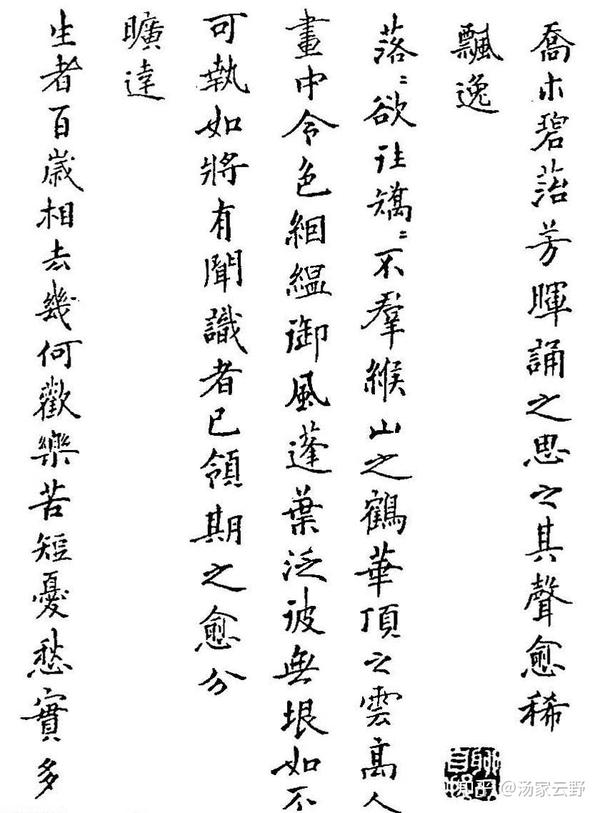 喬木碧菭芳暉誦之思之其聲愈稀
飄逸
落〻欲往矯〻不羣緱山之鶴華頂之雲高人
畫中令色絪緼御風蓬葉泛彼無垠如不
可執如將有聞識者已領期之愈分
曠達
生者百歲相去幾何歡樂苦短憂愁實多
知乎 @汤家云野